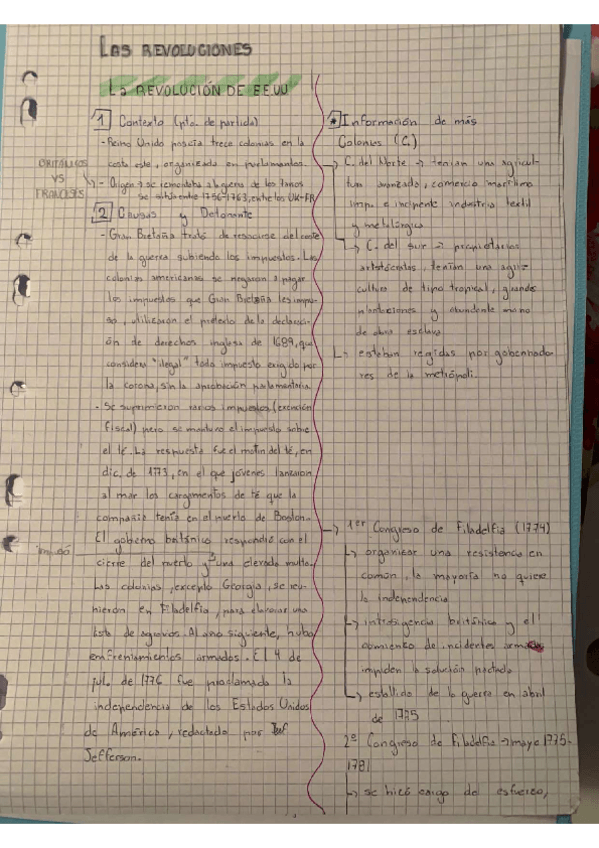 LAS REVOLUCIONES
La REVOLUCIÓN DE EE.UU
1 Contexto (pto. de partida)
- Reino Unido poseía trece colonias en la
costa este, organizada en parlamentos.
BRITÁNICOS
VS
FRANCESES
- Origen → se remonta a la guerra de los 7 años
se sitúa entre 1756-1763, entre los UK-FR
2 Causas y Detonante
- Gran Bretaña trató de resarcirse del coste
de la guerra subiendo los impuestos. Las
colonias americanas se negaron a pagar
los impuestos que Gran Bretaña les impu-
so, utilizaron el pretexto de la declaraci-
ón de derechos inglesa de 1689, que
considera "ilegal" todo impuesto exigido por
la corona, sin la aprobación parlamentaria.
- Se suprimieron varios impuestos (exención
fiscal) pero se mantuvo el impuesto sobre
el té. La respuesta fue el motín del té, en
dic. de 1773, en el que jóvenes lanzaron
al mar los cargamentos de té que la
compañía tenía en el puerto de Boston.
El gobierno británico respondió con el
impusó
cierre del puerto y una elevada multa.
Las colonias, excepto Georgia, se reu-
nieron en Filadelfia, para elaborar una
lista de agravios. Al año siguiente, hubo
enfrentamientos armados. El 4 de
jul. de 1776 fue proclamada la
independencia de los Estados Unidos
de América, redactado por
Jefferson.
* Información de más
Colonias (C.)
→ C. del Norte → tenían una agricul-
tura avanzada, comercio marítimo
impo. e incipiente industria textil
y metalúrgica
↳ C. del sur → propietarios
aristócratas, tenían una agri-
cultura de tipo tropical, grandes
plantaciones y abundante mano
de obra esclava
↳ estaban regidas por gobernado-
res de la metrópoli.
→ 1er Congreso de Filadelfia (1774)
↳ organizar una resistencia en
común, la mayoría no quiere
la independencia
↳ intransigencia británica y el
comienzo de incidentes armados
impiden la solución pactada
↳ estallido de la guerra en abril
de 1775
2º Congreso de Filadelfia → mayo 1775-
1781
↳ se hizó cargo del esfuerzo,